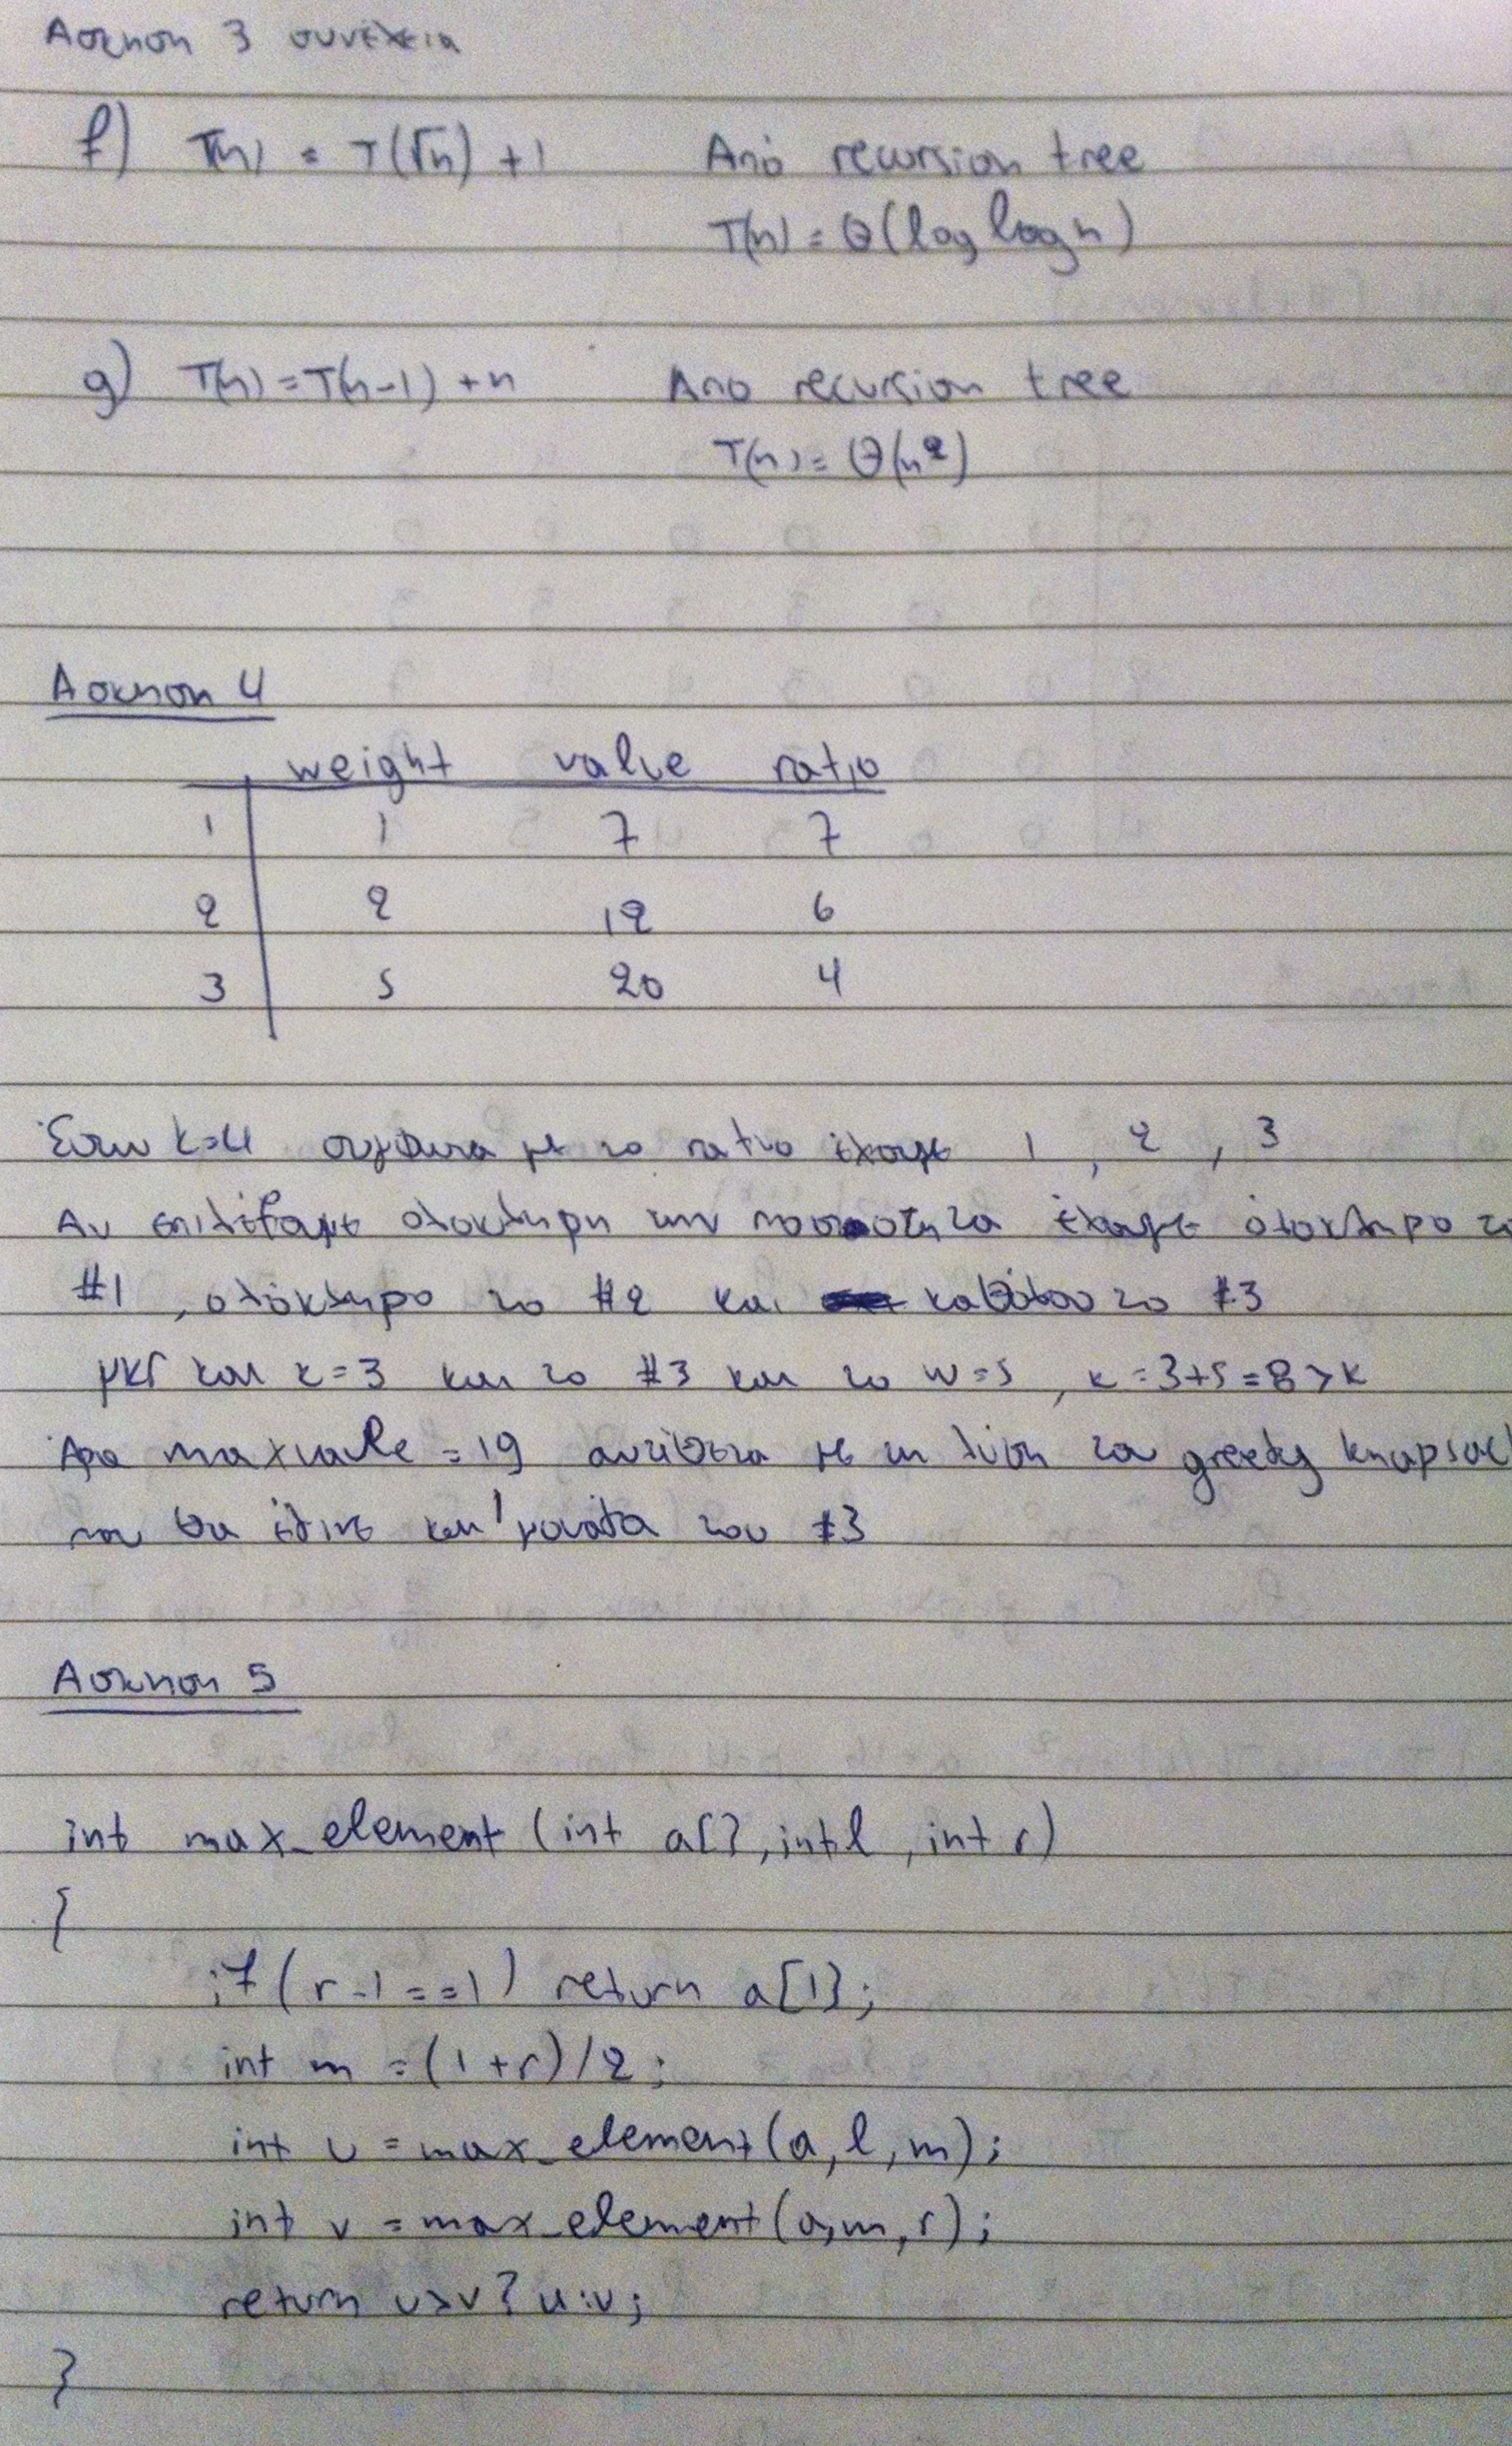 Άσκηση 3 συνέχεια
f) T(n) = T(√n) + 1 Από recursion tree
T(n) = Θ(log log n)
g) T(n) = T(n-1) + n Απο recursion tree
T(n) = Θ(n²)
Άσκηση 4
weight value ratio
1 1 7 7
2 2 12 6
3 5 20 4
Έστω k=4 σύμφωνα με το ratio έχουμε 1 , 2 , 3
Αν επιλέξουμε ολόκληρη την ποσότητα έχουμε ολόκληρο το
#1 , ολόκληρο το #2 και καθόλου το #3
και k=3 και το #3 και το w=5 , k=3+5=8>k
Άρα maxvalue = 19 αντίθετα με τη λύση του greedy knapsack
που θα έδινε και 1 μονάδα του #3
Άσκηση 5
int max_element (int a[], int l , int r)
{
if (r-l == 1) return a[l];
int m = (l+r)/2;
int u = max_element(a, l, m);
int v = max_element(a, m, r);
return u>v? u:v;
}